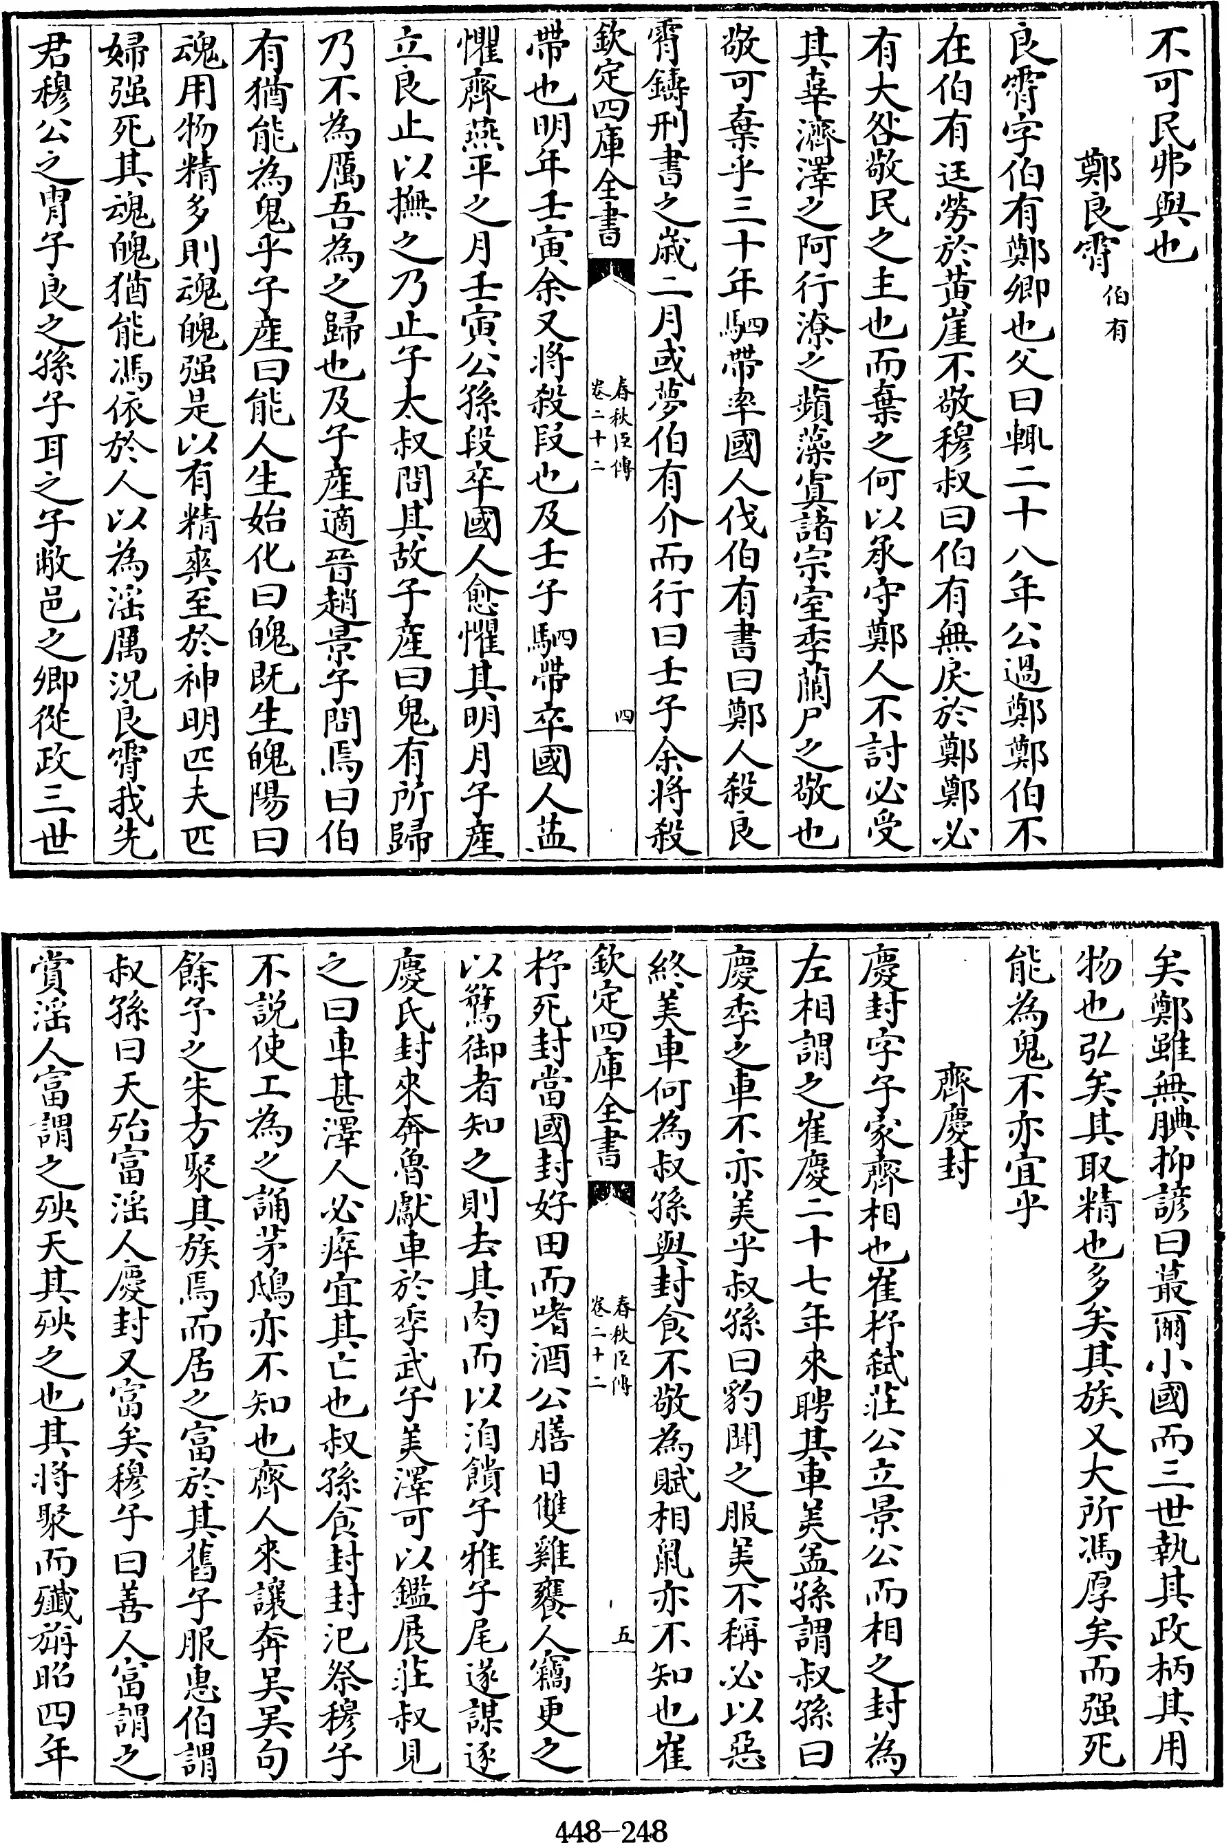 不可民弗與也
鄭良霄伯有
良霄字伯有鄭卿也父曰輒二十八年公過鄭鄭伯不
在伯有迋勞於黄崖不敬穆叔曰伯有無戾於鄭鄭必
有大咎敬民之主也而棄之何以承守鄭人不討必受
其辜濟澤之阿行潦之蘋藻寘諸宗室季蘭尸之敬也
敬可棄乎三十年駟帶率國人伐伯有書曰鄭人殺良
霄鑄刑書之歲二月或夢伯有介而行曰壬子余將殺
欽定四庫全書
春秋臣傳
卷二十二
四
帶也明年壬寅余又將殺段也及壬子駟帶卒國人益
懼齊燕平之月壬寅公孫段卒國人愈懼其明月子產
立良止以撫之乃止子太叔問其故子產曰鬼有所歸
乃不為厲吾為之歸也及子產適晉趙景子問焉曰伯
有猶能為鬼乎子產曰能人生始化曰魄既生魄陽曰
魂用物精多則魂魄强是以有精爽至於神明匹夫匹
婦强死其魂魄猶能馮依於人以為淫厲況良霄我先
君穆公之胄子良之孫子耳之子敝邑之卿從政三世
矣鄭雖無腆抑諺曰蕞爾小國而三世執其政柄其用
物也弘矣其取精也多矣其族又大所馮厚矣而强死
能為鬼不亦宜乎
齊慶封
慶封字子家齊相也崔杼弑莊公立景公而相之封為
左相謂之崔慶二十七年來聘其車美孟孫謂叔孫曰
慶季之車不亦美乎叔孫曰豹聞之服美不稱必以惡
終美車何為叔孫與封食不敬為賦相鼠亦不知也崔
欽定四庫全書
春秋臣傳
卷二十二
五
杼死封當國封好田而嗜酒公膳日雙雞饔人竊更之
以鶩御者知之則去其肉而以洎饋子雅子尾遂謀逐
慶氏封來奔魯獻車於季武子美澤可以鑑展莊叔見
之曰車甚澤人必瘁宜其亡也叔孫食封封氾祭穆子
不說使工為之誦茅鴟亦不知也齊人來讓奔吳吳句
餘予之朱方聚其族焉而居之富於其舊子服惠伯謂
叔孫曰天殆富淫人慶封又富矣穆子曰善人富謂之
賞淫人富謂之殃天其殃之也其將聚而殲旃昭四年
448-248